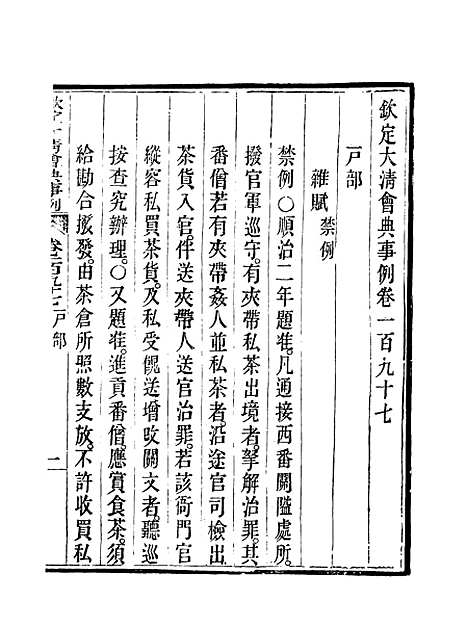 欽定大清會典事例卷一百九十七
戸部
雜賦禁例
禁例○順治二年題准。凡通接西番關隘處所。
撥官軍巡守。有夾帶私茶出境者。拏解治罪。其
番僧若有夾帶姦人並私茶者。沿途官司檢出
茶貨入官。伴送夾帶人送官治罪。若該衙門官
縱容私買茶貨。及私受餽送增改關文者。聽巡
按查究辦理。○又題准。進貢番僧。應賞食茶。須
給勘合撥發。由茶倉所照數支放。不許收買私
欽定大清會典事例 戸部 一